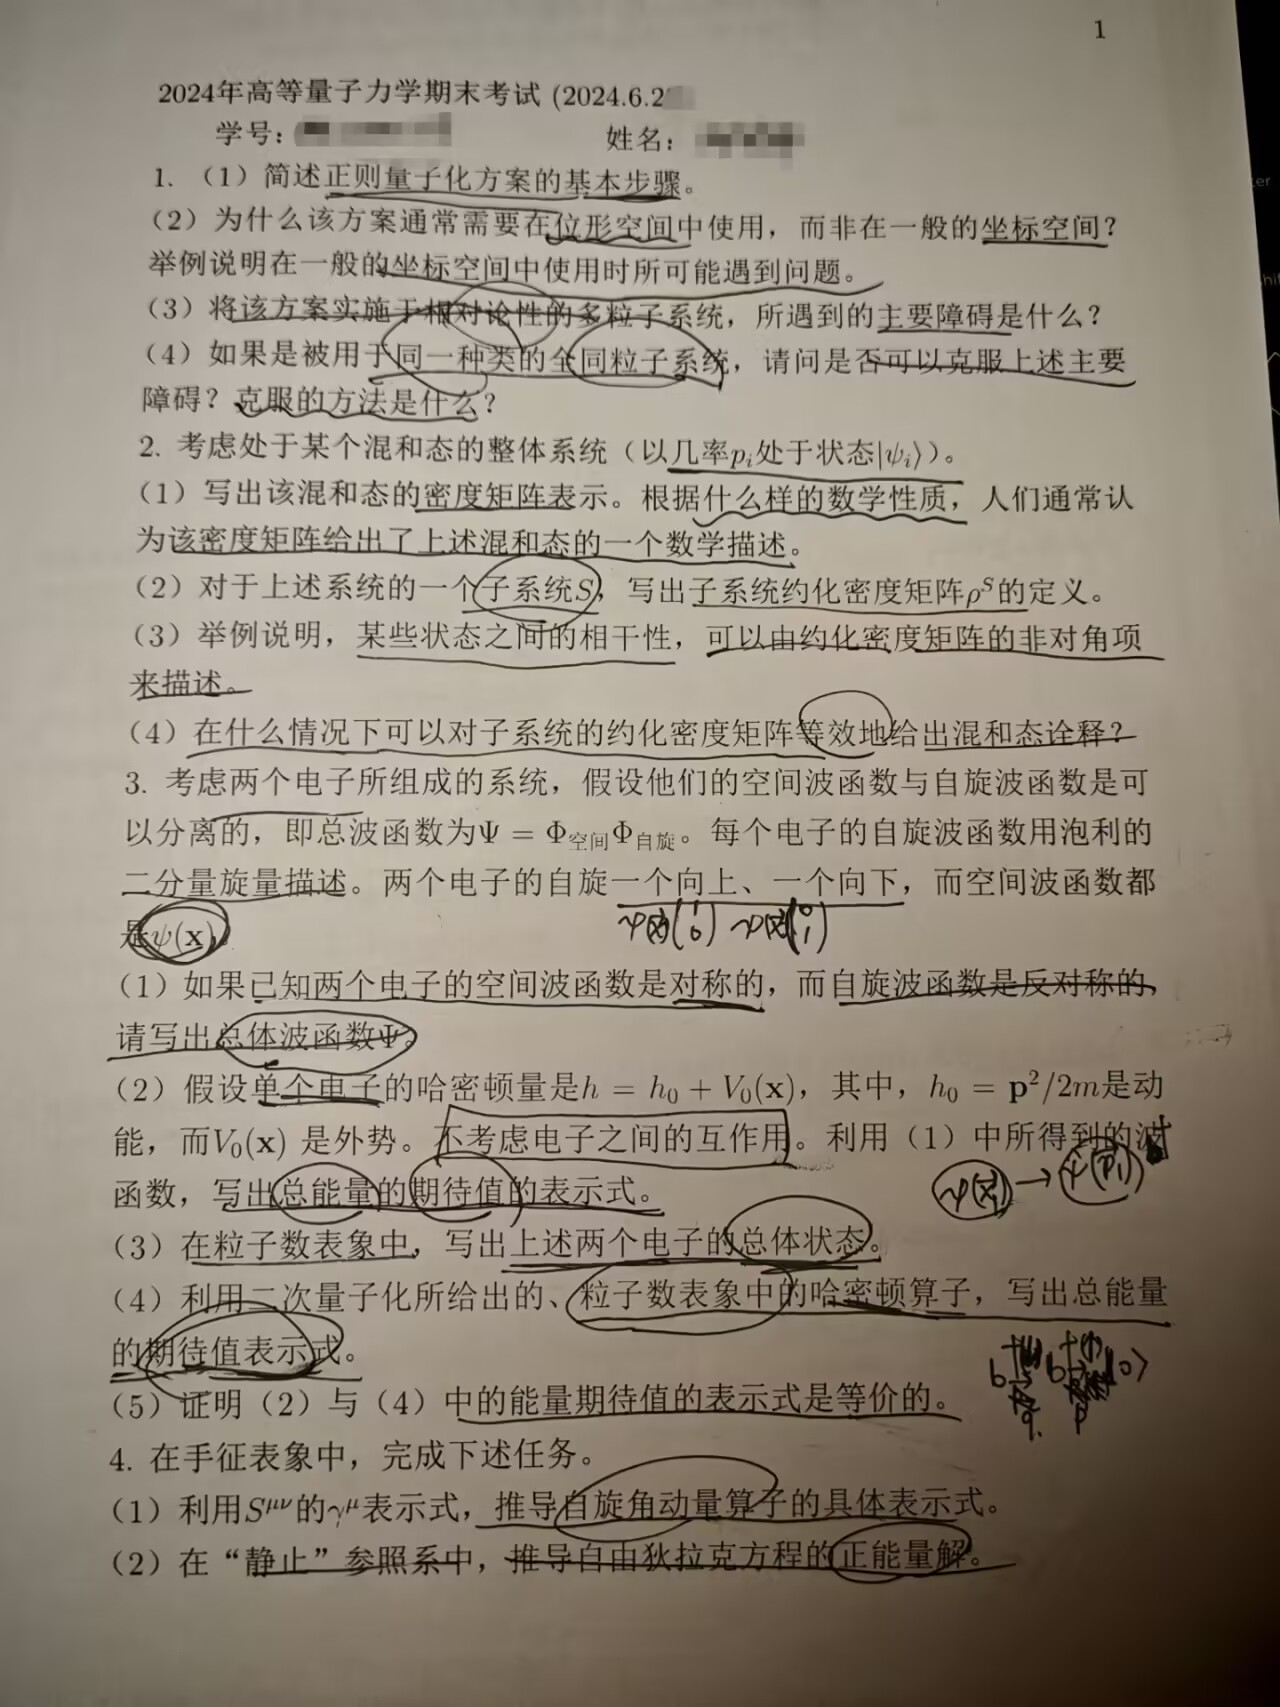 1
2024年高等量子力学期末考试 (2024.6.2
学号: 姓名:
1. （1）简述正则量子化方案的基本步骤。
（2）为什么该方案通常需要在位形空间中使用，而非在一般的坐标空间?
举例说明在一般的坐标空间中使用时所可能遇到问题。
（3）将该方案实施于相对论性的多粒子系统，所遇到的主要障碍是什么?
（4）如果是被用于同一种类的全同粒子系统，请问是否可以克服上述主要
障碍? 克服的方法是什么?
2. 考虑处于某个混和态的整体系统（以几率pᵢ处于状态|ψᵢ⟩）。
（1）写出该混和态的密度矩阵表示。根据什么样的数学性质，人们通常认
为该密度矩阵给出了上述混和态的一个数学描述。
（2）对于上述系统的一个子系统S，写出子系统约化密度矩阵ρˢ的定义。
（3）举例说明，某些状态之间的相干性，可以由约化密度矩阵的非对角项
来描述。
（4）在什么情况下可以对子系统的约化密度矩阵等效地给出混和态诠释?
3. 考虑两个电子所组成的系统，假设他们的空间波函数与自旋波函数是可
以分离的，即总波函数为Ψ = Φ空间Φ自旋。每个电子的自旋波函数用泡利的
二分量旋量描述。两个电子的自旋一个向上、一个向下，而空间波函数都
是ψ(x)。
（1）如果已知两个电子的空间波函数是对称的，而自旋波函数是反对称的，
请写出总体波函数Ψ。
（2）假设单个电子的哈密顿量是h = h₀ + V₀(x)，其中，h₀ = p²/2m是动
能，而V₀(x) 是外势。不考虑电子之间的互作用。利用（1）中所得到的波
函数，写出总能量的期待值的表示式。
（3）在粒子数表象中，写出上述两个电子的总体状态。
（4）利用二次量子化所给出的、粒子数表象中的哈密顿算子，写出总能量
的期待值表示式。
（5）证明（2）与（4）中的能量期待值的表示式是等价的。
4. 在手征表象中，完成下述任务。
（1）利用S^μν的γ^μ表示式，推导自旋角动量算子的具体表示式。
（2）在“静止”参照系中，推导自由狄拉克方程的正能量解。